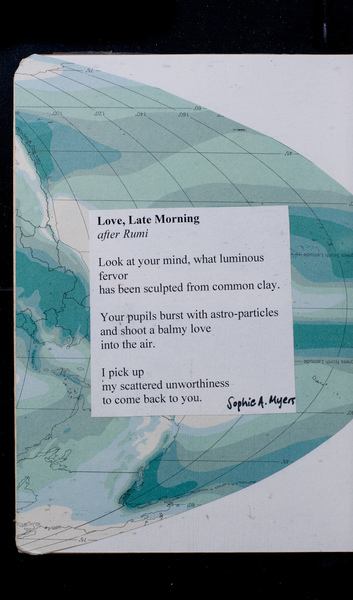 Love, Late Morning
after Rumi
Look at your mind, what luminous
fervor
has been sculpted from common clay.
Your pupils burst with astro-particles
and shoot a balmy love
into the air.
I pick up
my scattered unworthiness
to come back to you.
Sophie A. Myers